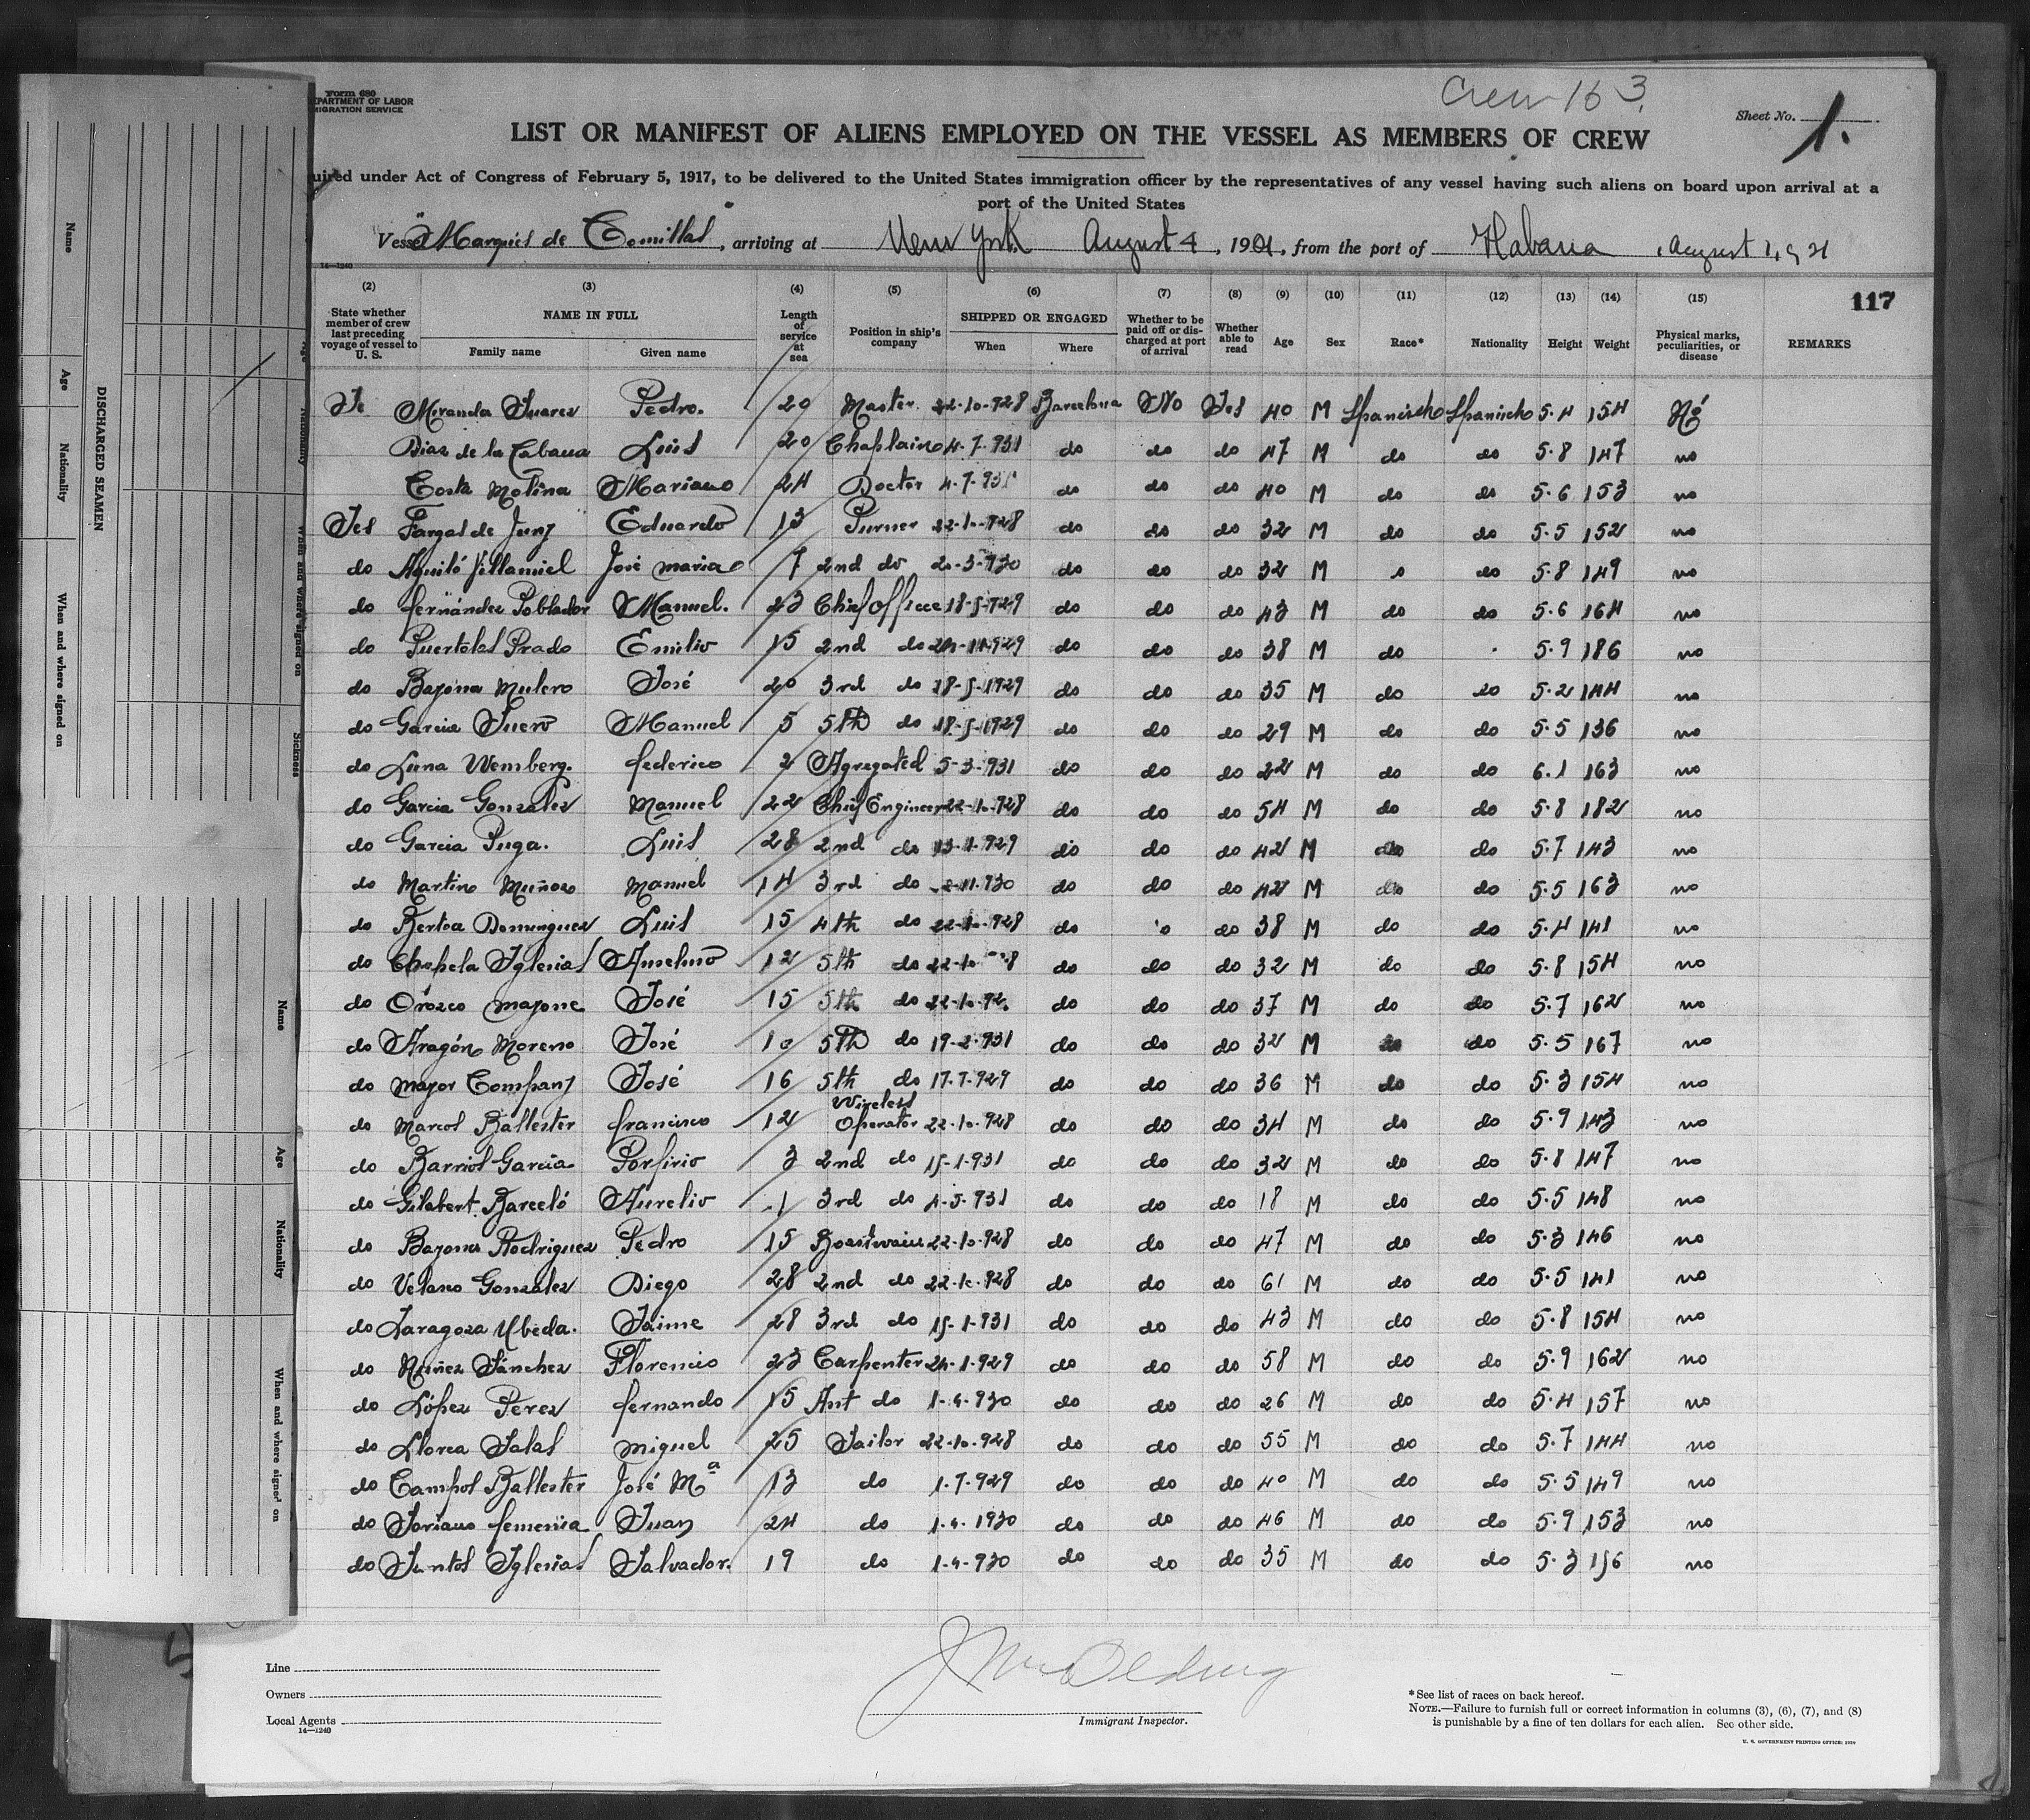 Crew 163.
Form 680
DEPARTMENT OF LABOR
MIGRATION SERVICE
Sheet No. 1.
LIST OR MANIFEST OF ALIENS EMPLOYED ON THE VESSEL AS MEMBERS OF CREW
uired under Act of Congress of February 5, 1917, to be delivered to the United States immigration officer by the representatives of any vessel having such aliens on board upon arrival at a
port of the United States
Vessel "Marqués de Comillas", arriving at New York August 4, 1931, from the port of Habana, August 1, 931
14—1240
117
(2) (3) (4) (5) (6) (7) (8) (9) (10) (11) (12) (13) (14) (15)
State whether member of crew last preceding voyage of vessel to U. S. NAME IN FULL Family name Given name Length of service at sea Position in ship's company SHIPPED OR ENGAGED When Where Whether to be paid off or discharged at port of arrival Whether able to read Age Sex Race* Nationality Height Weight Physical marks, peculiarities, or disease REMARKS
Miranda Suarez Pedro. 20 Master 22-10-928 Barcelona No Yes 40 M Spanischo Spanischo 5.4 154 No
Diaz de la Cabana Luis 20 Chaplain 4-7-931 do do do 47 M do do 5.8 147 no
Costa Molina Mariano 24 Doctor 4-7-931 do do do 40 M do do 5.6 153 no
Yes Fargas de Juny Eduardo 13 Purser 22-10-928 do do do 32 M do do 5.5 152 no
do Aguiló Villamiel José maria 7 2nd do 20-3-930 do do do 32 M do 5.8 149 no
do fernández Poblador Manuel. 23 Chief officer 18-5-929 do do do 43 M do do 5.6 164 no
do Puertolas Prado Emilio 15 2nd do 24-11-929 do do do 38 M do 5.9 186 no
do Bayona Mulero José 20 3rd do 18-5-1929 do do do 35 M do do 5.2 144 no
do Garcia Suero Manuel 5 5th do 18-5-1929 do do do 29 M do do 5.5 136 no
do Luna Wemberg. federico 2 Agregated 5-3-931 do do do 22 M do do 6.1 163 no
do Garcia Gonzalez Manuel 22 Chief Engineer 22-10-928 do do do 54 M do do 5.8 182 no
do Garcia Puga. Luis 28 2nd do 13-1-929 do do do 42 M do do 5.7 143 no
do Martino Muñoso Manuel 14 3rd do 2-11-930 do do do 42 M do do 5.5 163 no
do Bertoa Dominguez Luis 15 4th do 22-10-928 do do do 38 M do do 5.4 141 no
do Chapela Iglesias Anselmo 12 5th do 22-10-928 do do do 32 M do do 5.8 154 no
do Orozco mayone José 15 5th do 22-10-92 do do do 37 M do do 5.7 162 no
do Aragón Moreno José 10 5th do 19-2-931 do do do 32 M do do 5.5 167 no
do Mayor Company José 16 5th do 17-7-929 do do do 36 M do do 5.3 154 no
do Marcos Ballester francisco 12 Wireless Operator 22-10-928 do do do 34 M do do 5.9 143 no
do Barrios Garcia Porfirio 3 2nd do 15-1-931 do do do 32 M do do 5.8 147 no
do Gilabert Barceló Aurelio 1 3rd do 4-5-931 do do do 18 M do do 5.5 148 no
do Bayona Rodriguez Pedro 15 Boastwain 22-10-928 do do do 47 M do do 5.3 146 no
do Velasco Gonzalez Diego 28 2nd do 22-10-928 do do do 61 M do do 5.5 141 no
do Zaragoza Ubeda. Jaime 28 3rd do 15-1-931 do do do 43 M do do 5.8 154 no
do Nuñez Sánchez Florencio 23 Carpenter 24-1-929 do do do 58 M do do 5.9 162 no
do López Perez fernando 15 Ant do 1-4-930 do do do 26 M do do 5.4 157 no
do Llorca Salas Miguel 25 Sailor 22-10-928 do do do 55 M do do 5.7 144 no
do Campos Ballester José Mª 13 do 1-7-929 do do do 40 M do do 5.5 149 no
do Soriano femenia Juan 24 do 1-4-1930 do do do 46 M do do 5.9 153 no
do Santos Iglesias Salvador. 19 do 1-4-930 do do do 35 M do do 5.3 156 no
Line
Owners
Local Agents
14—1240
Immigrant Inspector.
*See list of races on back hereof.
NOTE.—Failure to furnish full or correct information in columns (3), (6), (7), and (8)
is punishable by a fine of ten dollars for each alien. See other side.
U. S. GOVERNMENT PRINTING OFFICE: 1929
DISCHARGED SEAMEN
Name Age Nationality When and where signed on
Sickness
Name Age Nationality When and where signed on